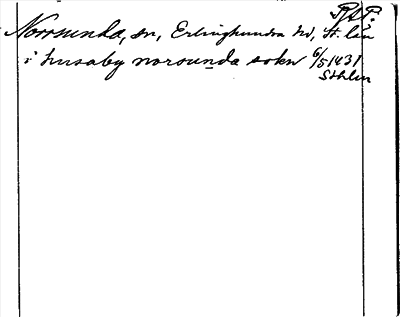 RAP.
Norrsunda, sn, Erlinghundra hd, St. län
i husaby norsunda sokn 6/5 1431
Sthlm